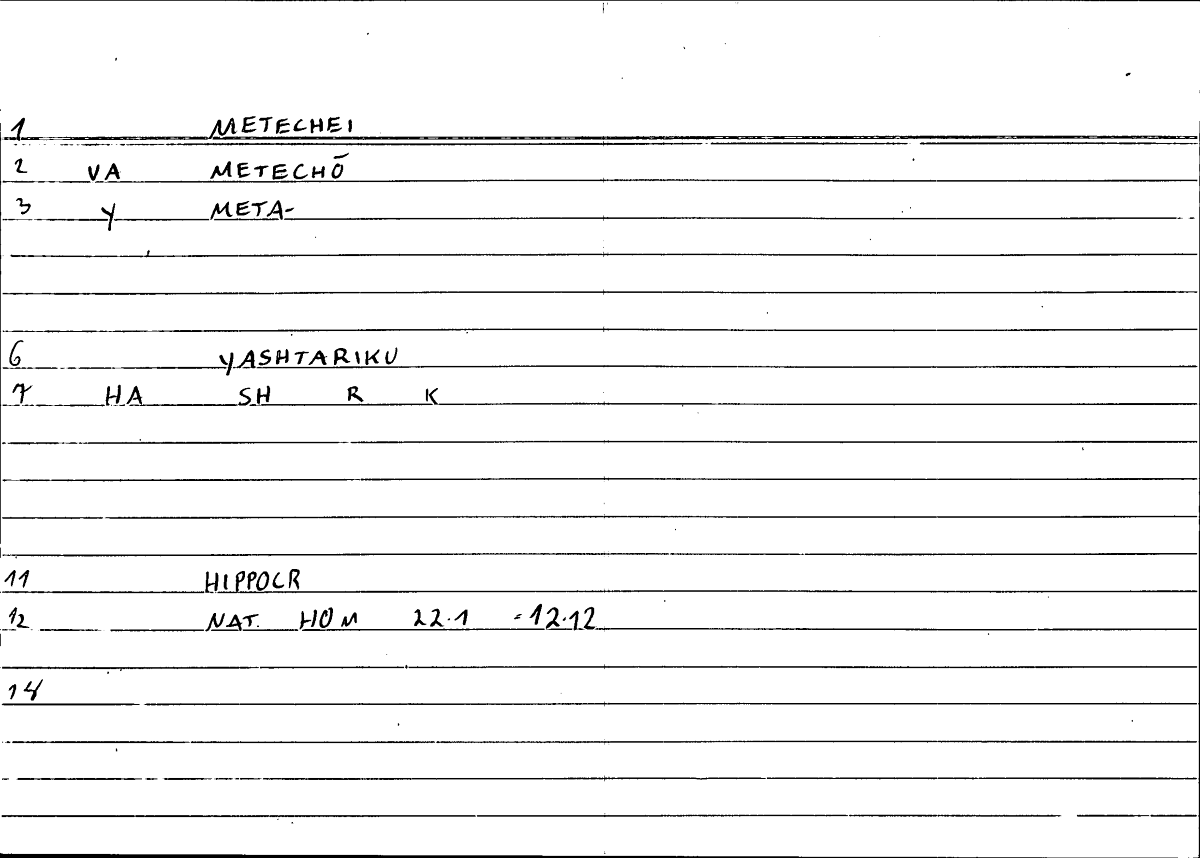 1 METECHEI
2 VA METECHŌ
3 Y META-
6 YASHTARIKU
7 HA SH R K
11 HIPPOCR
12 NAT. HOM 22.1 =12.12
14